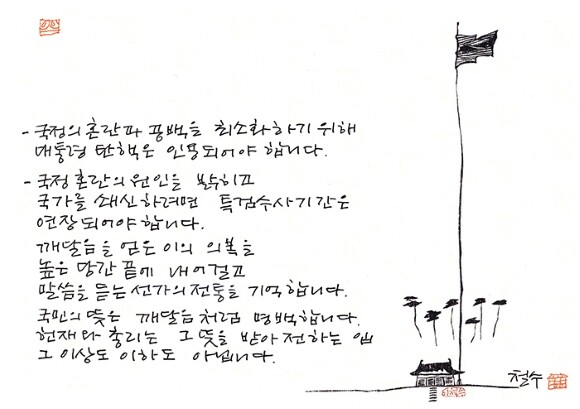 - 국정의 혼란과 공백을 최소화하기 위해
대통령 탄핵은 인용되어야 합니다.
- 국정 혼란의 원인을 밝히고
국가를 쇄신하려면 특검수사기간은
연장되어야합니다.
깨달음을 얻은 이의 의복을
높은 장간 끝에 내어걸고
말씀을 듣는 선가의 전통을 기억합니다.
국민의 뜻은 깨달음처럼 명백합니다.
헌재와 총리는 그 뜻을 받아 전하는 입
그 이상도 이하도 아닙니다.
철수